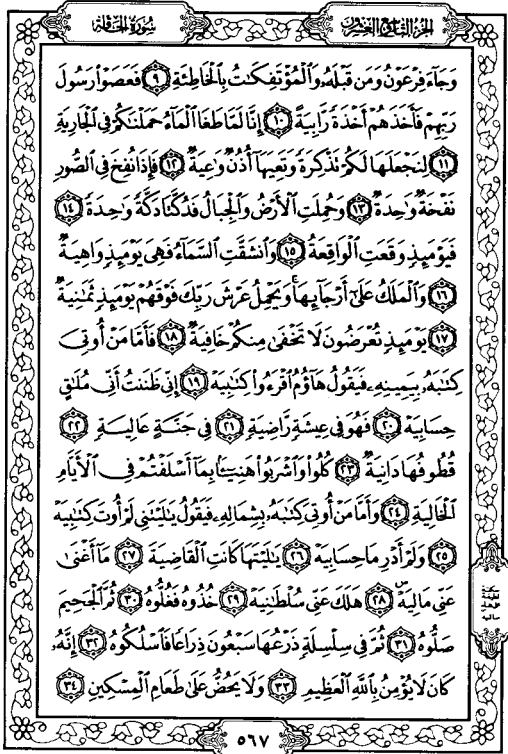 سُورَةُ الحَاقَّةِ
الجُزْءُ التَّاسِعُ وَالعِشْرُونَ
وَجَآءَ فِرْعَوْنُ وَمَن قَبْلَهُۥ وَٱلْمُؤْتَفِكَٰتُ بِٱلْخَاطِئَةِ ٩ فَعَصَوْا۟ رَسُولَ
رَبِّهِمْ فَأَخَذَهُمْ أَخْذَةً رَّابِيَةً ١٠ إِنَّا لَمَّا طَغَا ٱلْمَآءُ حَمَلْنَٰكُمْ فِى ٱلْجَارِيَةِ
١١ لِنَجْعَلَهَا لَكُمْ تَذْكِرَةً وَتَعِيَهَآ أُذُنٌ وَٰعِيَةٌ ١٢ فَإِذَا نُفِخَ فِى ٱلصُّورِ
نَفْخَةٌ وَٰحِدَةٌ ١٣ وَحُمِلَتِ ٱلْأَرْضُ وَٱلْجِبَالُ فَدُكَّتَا دَكَّةً وَٰحِدَةً ١٤
فَيَوْمَئِذٍ وَقَعَتِ ٱلْوَاقِعَةُ ١٥ وَٱنشَقَّتِ ٱلسَّمَآءُ فَهِىَ يَوْمَئِذٍ وَاهِيَةٌ
١٦ وَٱلْمَلَكُ عَلَىٰٓ أَرْجَآئِهَا ۚ وَيَحْمِلُ عَرْشَ رَبِّكَ فَوْقَهُمْ يَوْمَئِذٍ ثَمَٰنِيَةٌ
١٧ يَوْمَئِذٍ تُعْرَضُونَ لَا تَخْفَىٰ مِنكُمْ خَافِيَةٌ ١٨ فَأَمَّا مَنْ أُوتِىَ
كِتَٰبَهُۥ بِيَمِينِهِۦ فَيَقُولُ هَآؤُمُ ٱقْرَءُوا۟ كِتَٰبِيَهْ ١٩ إِنِّى ظَنَنتُ أَنِّى مُلَٰقٍ
حِسَابِيَهْ ٢٠ فَهُوَ فِى عِيشَةٍ رَّاضِيَةٍ ٢١ فِى جَنَّةٍ عَالِيَةٍ ٢٢
قُطُوفُهَا دَانِيَةٌ ٢٣ كُلُوا۟ وَٱشْرَبُوا۟ هَنِيٓـًٔۢا بِمَآ أَسْلَفْتُمْ فِى ٱلْأَيَّامِ
ٱلْخَالِيَةِ ٢٤ وَأَمَّا مَنْ أُوتِىَ كِتَٰبَهُۥ بِشِمَالِهِۦ فَيَقُولُ يَٰلَيْتَنِى لَمْ أُوتَ كِتَٰبِيَهْ
٢٥ وَلَمْ أَدْرِ مَا حِسَابِيَهْ ٢٦ يَٰلَيْتَهَا كَانَتِ ٱلْقَاضِيَةَ ٢٧ مَآ أَغْنَىٰ
عَنِّى مَالِيَهْ ۜ ٢٨ هَلَكَ عَنِّى سُلْطَٰنِيَهْ ٢٩ خُذُوهُ فَغُلُّوهُ ٣٠ ثُمَّ ٱلْجَحِيمَ
صَلُّوهُ ٣١ ثُمَّ فِى سِلْسِلَةٍ ذَرْعُهَا سَبْعُونَ ذِرَاعًا فَٱسْلُكُوهُ ٣٢ إِنَّهُۥ
كَانَ لَا يُؤْمِنُ بِٱللَّهِ ٱلْعَظِيمِ ٣٣ وَلَا يَحُضُّ عَلَىٰ طَعَامِ ٱلْمِسْكِينِ ٣٤
٥٦٧